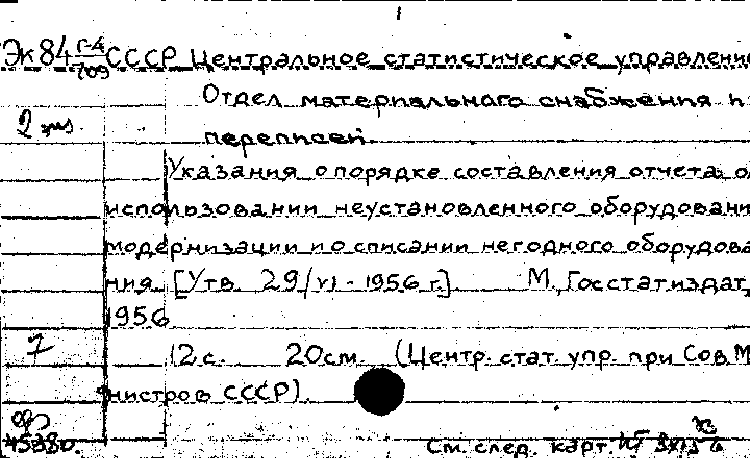 1
Эк 84 Г-4/709 СССР Центральное статистическое управлени
Отдел материального снабжения и
2 экз.
переписей.
Указания о порядке составления отчета о
использовании неустановленного оборудовани
модернизации и о списании негодного оборудова
ния. [Утв. 29/VI - 1956 г.]. М., Госстатиздат,
1956
7
12 с. 20 см. (Центр. стат. упр. при Сов. М
нистров СССР).
45380.
См. след. карт.